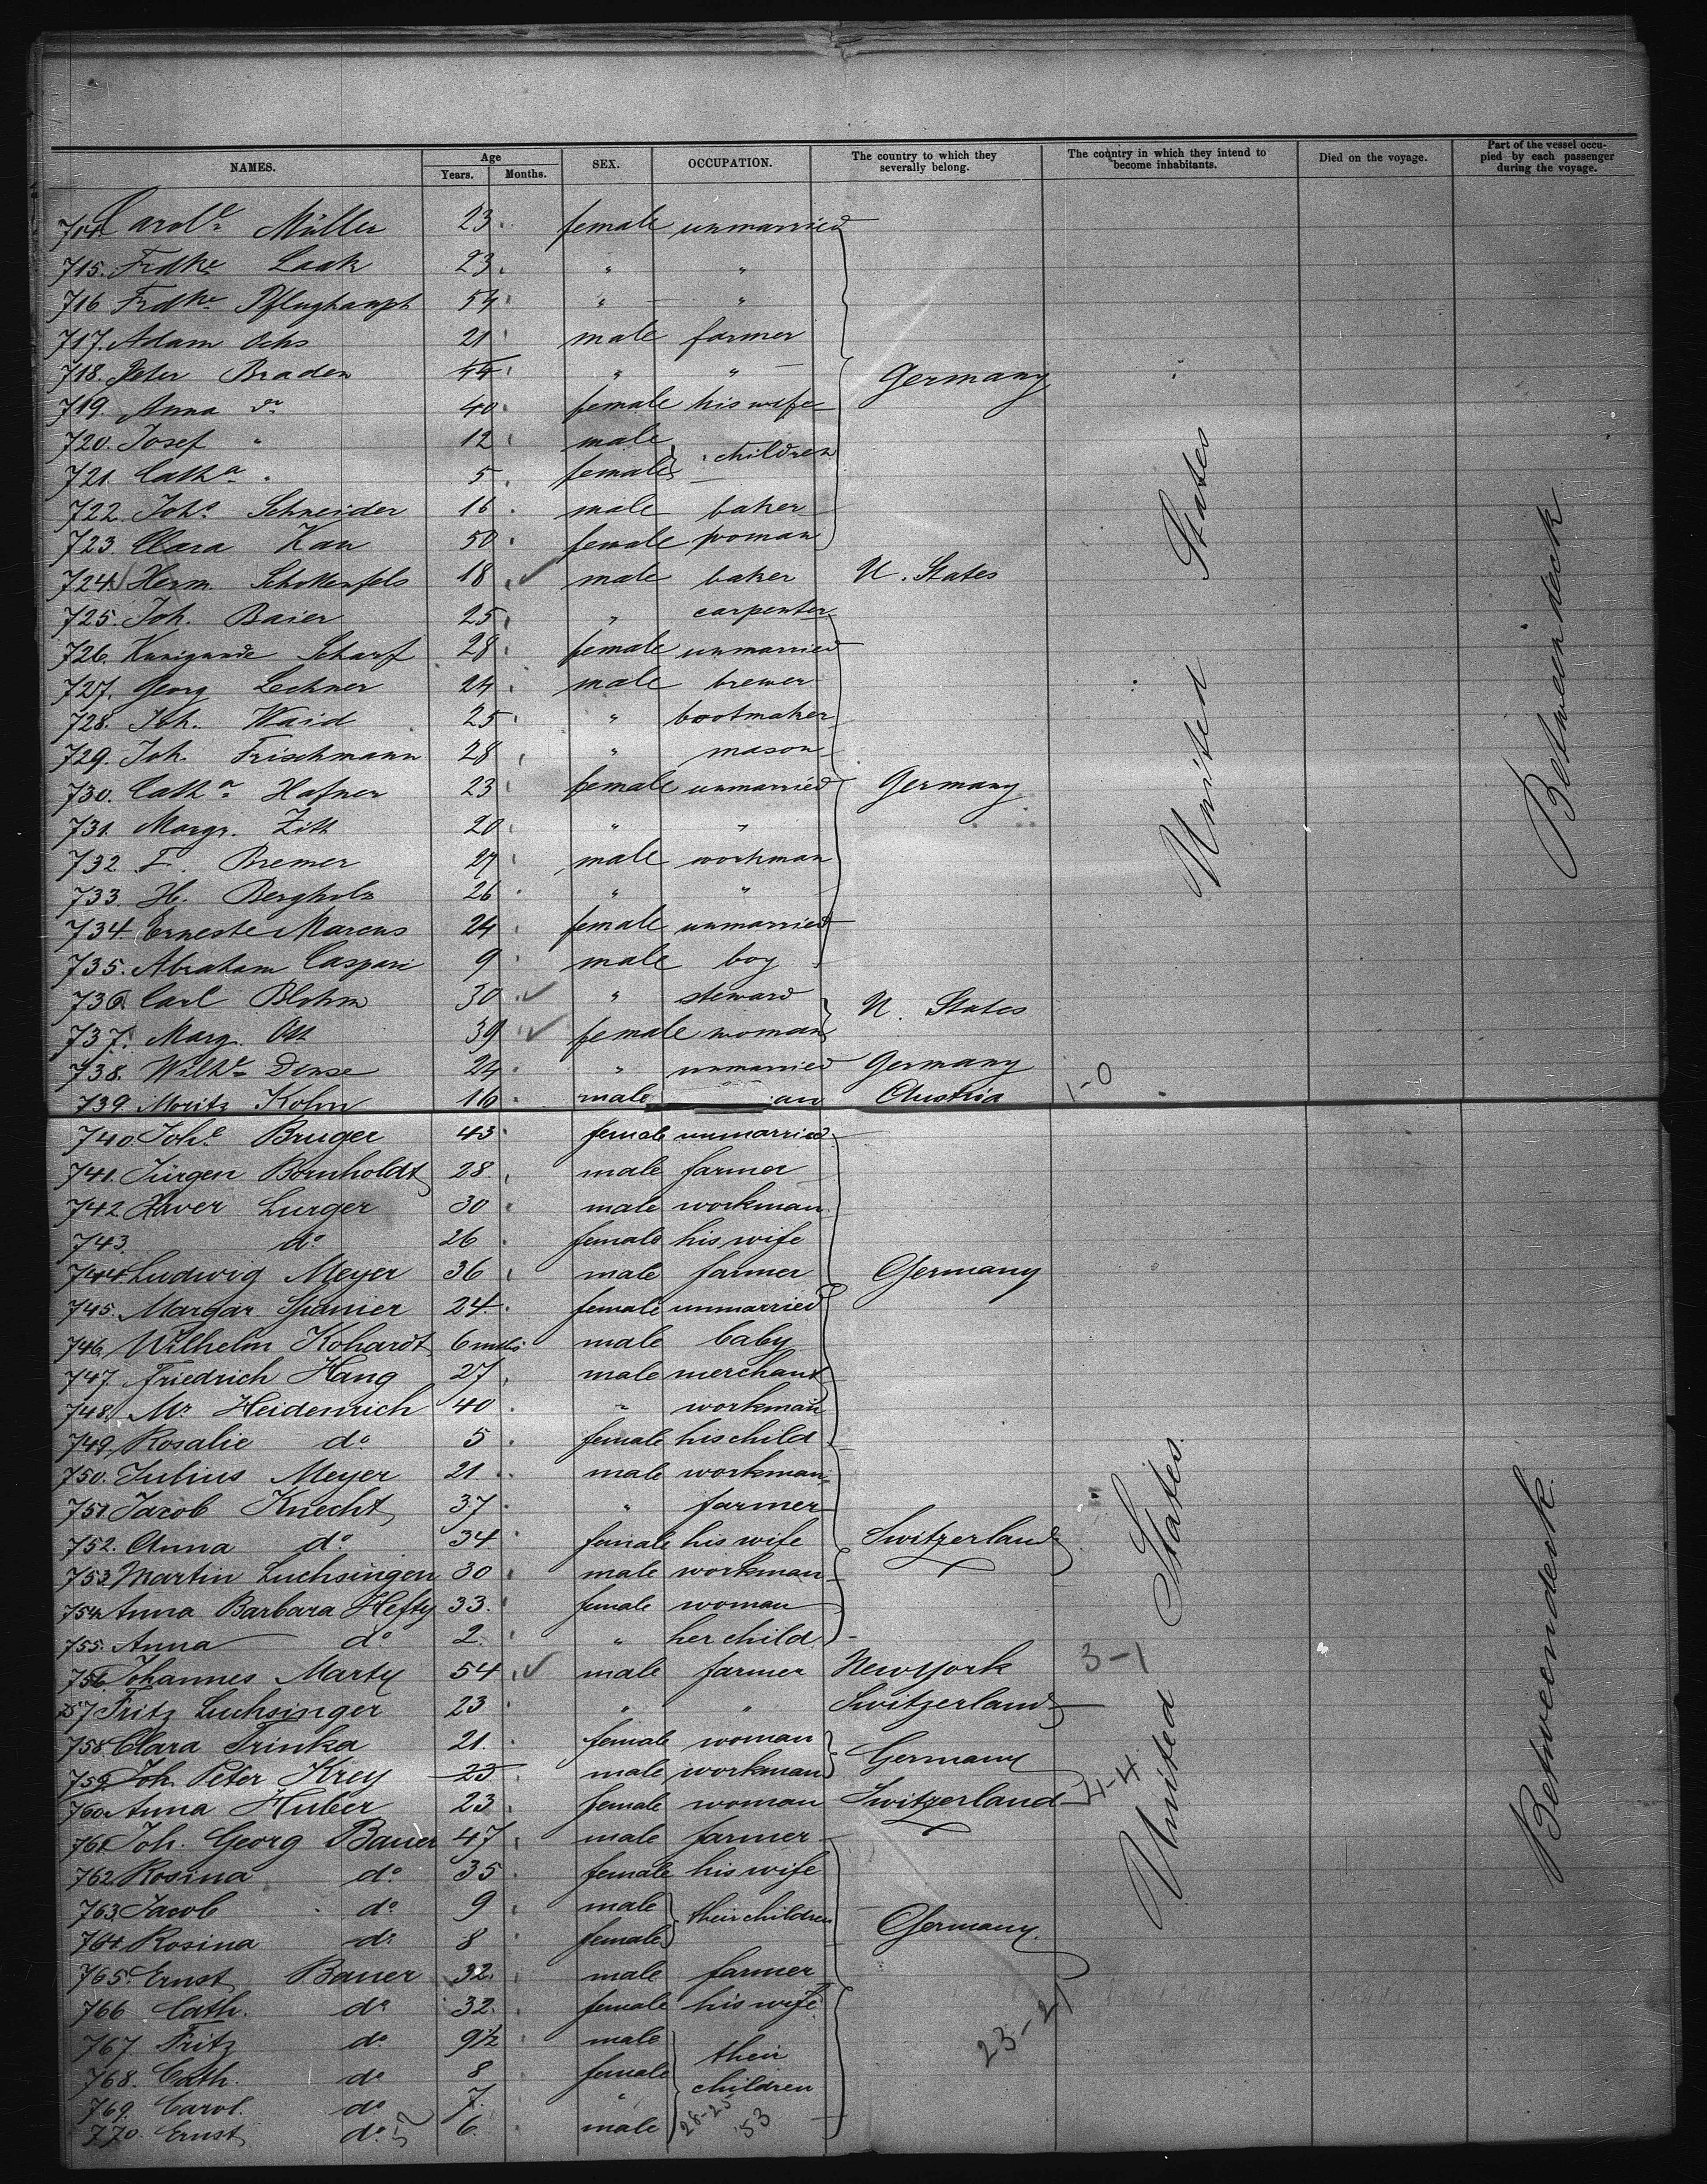 NAMES. Age Years. Months. SEX. OCCUPATION. The country to which they severally belong. The country in which they intend to become inhabitants. Died on the voyage. Part of the vessel occupied by each passenger during the voyage.
714 Carole Müller 23 female unmarried
715. Frdke Laak 23 " "
716 Frdke Pflughaupt 54 " "
717. Adam Ochs 21 male farmer
718. Peter Braden 44 " " Germany
719. Anna do 40 female his wife
720. Josef " 12 male children
721. Catha " 5 female
722. Joh. Schneider 16 male baker
723. Clara Kau 50 female woman
724. Herm. Schottenfels 18 male baker U. States
725. Joh. Baier 25 " carpenter
726. Kunigunde Scharf 28 female unmarried
727. Georg Lechner 24 male brewer
728. Joh. Waid 25 " bootmaker
729. Joh. Frischmann 28 " mason
730. Catha Hafner 23 female unmarried Germany
731. Margr. Zitt 20 " "
732 F. Bremer 27 male workman
733. H. Bergholz 26 " "
734. Erneste Marcus 24 female unmarried
735. Abraham Caspari 9 male boy
736. Carl Blohm 30 " steward U. States
737. Marg. Ott 39 female woman
738. Wilhe Dense 24 " unmarried Germany
739. Moritz Kohn 16 male Austria 1-0
740. Johe Bruger 43 female unmarried
741. Jürgen Bornholdt 28. male farmer
742 Xaver Lurger 30 male workman
743. do 26 female his wife
744 Ludwig Meyer 36 male farmer Germany
745. Margar Spanier 24. female unmarried
746. Wilhelm Kohardt 6 mths male baby
747. Friedrich Hang 27 male merchant
748. Mr Heidenrich 40 " workman
749. Rosalie do 5 female his child
750. Julius Meyer 21 male workman
751. Jacob Knecht 37 " farmer
752. Anna do 34 female his wife Switzerland
753. Martin Luchsinger 30 male workman
754. Anna Barbara Hefty 33. female woman
755. Anna do 2. " her child
756. Johannes Marty 54 male farmer New York 3-1
757 Fritz Luchsinger 23 " " Switzerland
758. Clara Trinka 21 female woman Germany
759. Joh. Peter Krey 23 male workman
760. Anna Huber 23 female woman Switzerland 4-4
761. Joh. Georg Bauer 47 male farmer
762 Rosina do 35 female his wife
763. Jacob do 9 male their children
764. Rosina do 8 female Germany.
765. Ernst Bauer 32. male farmer
766 Cath. do 32. female his wife
767. Fritz do 9½ male their
768. Cath. do 8 female children
769. Carol. do 7. "
770. Ernst do 6. male
57
28-25
53
23-21
United States
United States.
Betweendeck
Betweendeck.